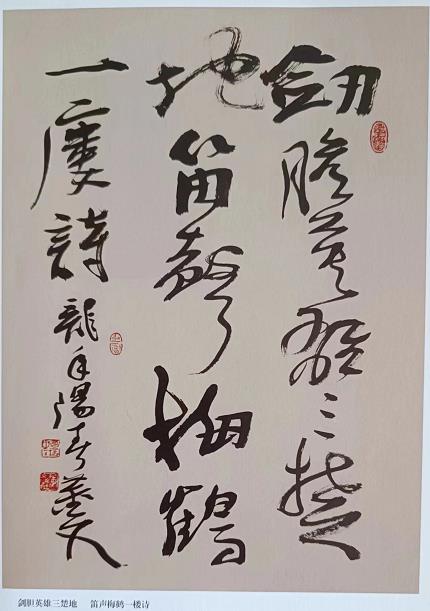 劍膽英雄三楚
地笛聲梅鶴
一廔詩
龍年陽春
剑胆英雄三楚地 笛声梅鹤一楼诗